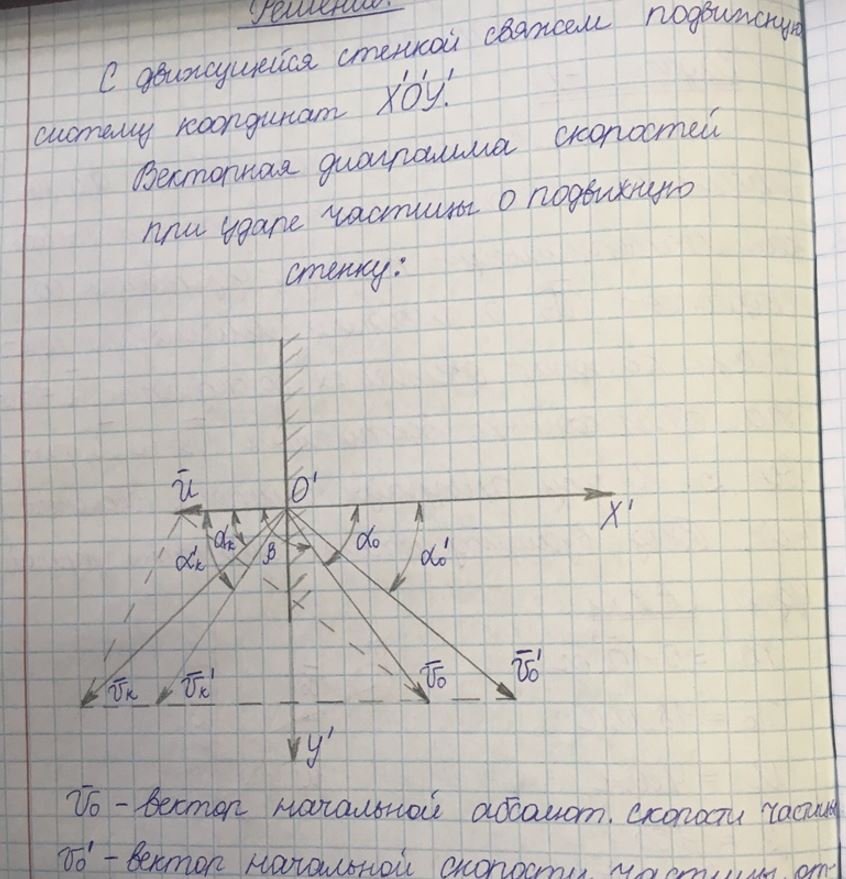 Решение:
С движущейся стенкой свяжем подвижную
систему координат X'O'Y'.
Векторная диаграмма скоростей
при ударе частицы о подвижную
стенку:
ū O' X'
α'ₖ αₖ β α₀ α₀'
v̄ₖ v̄ₖ' v̄₀ v̄₀'
Y'
v̄₀ - вектор начальной абсолют. скорости частицы
v̄₀' - вектор начальной скорости частицы от-